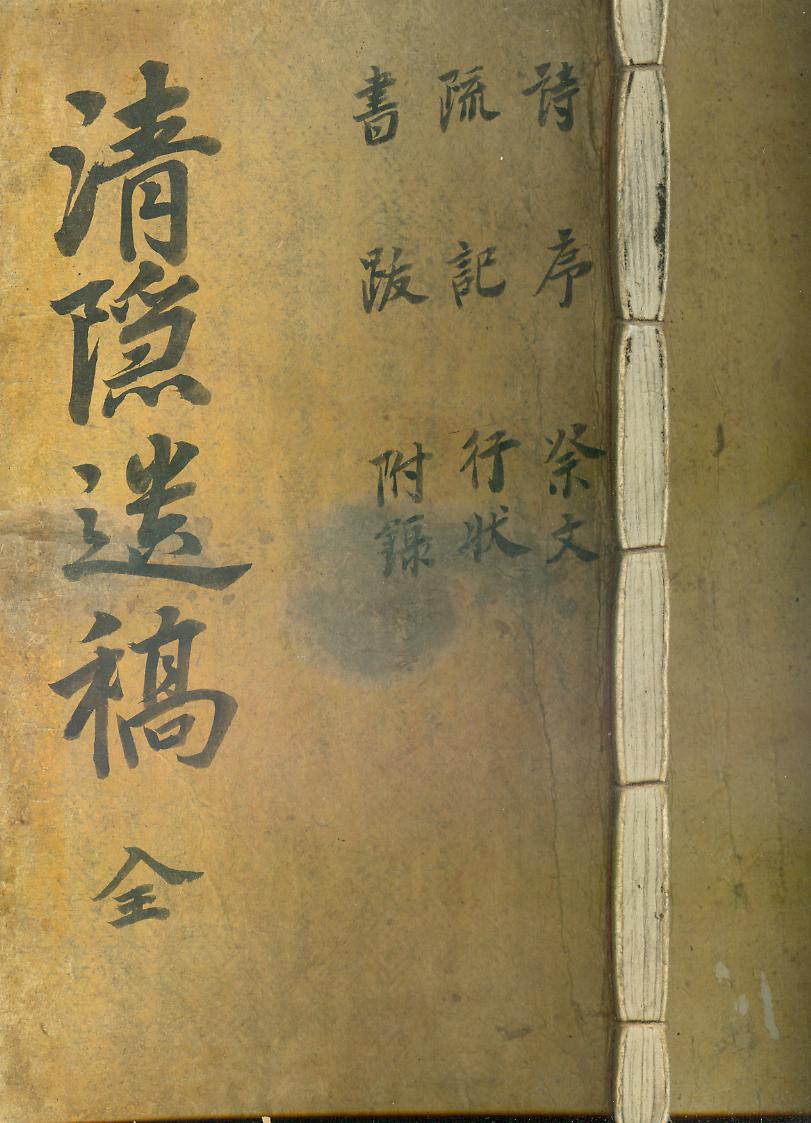 詩 序 祭文
疏 記 行狀
書 跋 附錄
清隱遺稿 全